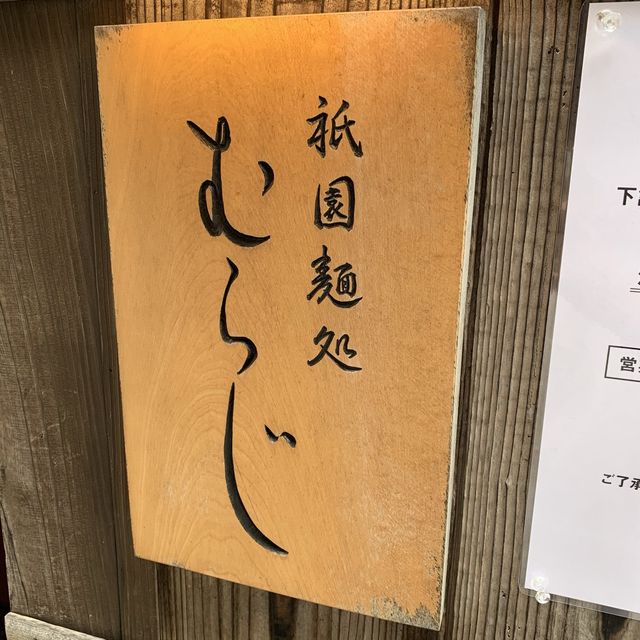 祇園麺処
むらじ
営
ご了承